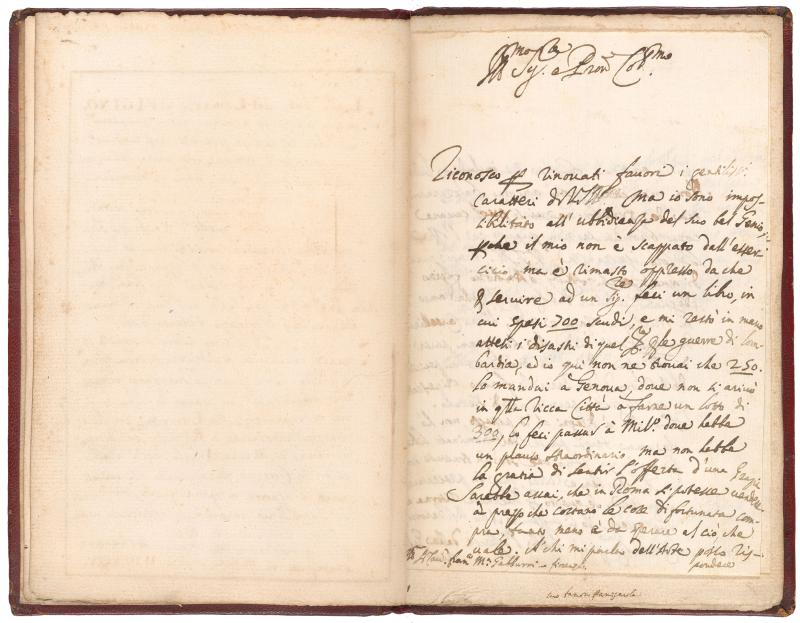 Ill.mo Sig.re e Pron Col.mo
Riconosco p rinouati fauori i gentiliss.i
caratteri di V.S. Ill. Ma io sono impos-
sibilitato all'ubbidienza del suo bel Genio,
pche il mio non è scappato dall'esser-
cicio, ma è rimasto oppresso da che
p seruire ad un Sig.re feci un libro, in
cui spesi 700 scudi, e mi restò in mano
attesi i disastri di quel p le guerre di Lom-
bardia, ed io qui non ne trouai che 250.
Lo mandai à Genoua, doue non s'arriuò
in qlla ricca Città a farne un lotto di
300, lo feci passar à Mil.o doue hebbe
un plauso straordinario ma non hebbe
la gratia di sentir l'offerta d'una
Sarebbe assai, che in Roma si potesse uendere
à prezzo che costano le cose di fortunata com-
pra, tanto meno è da sperare al ciò che
uale. A chi mi parla dell'Arte posso ris-
pondere
Fran.co M.a Gabburri - Firenze.